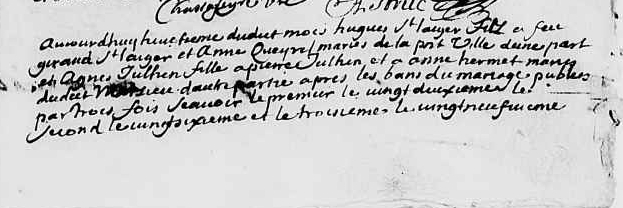 A. Struc
Aujourdhuy huictieme dudit mois hugues St laiger Filz a feu
giraud St laiger et Anne Queyrel maries de la pnt Ville d'une part
et Agnes Julhien fille a pierre Julhien et a anne hermet maries
dudit d'autre partie apres les bans du mariage publies
par trois fois scavoir le premier le vingt deuxieme le
second le vingt sixieme et le troisieme le vingt neufvieme